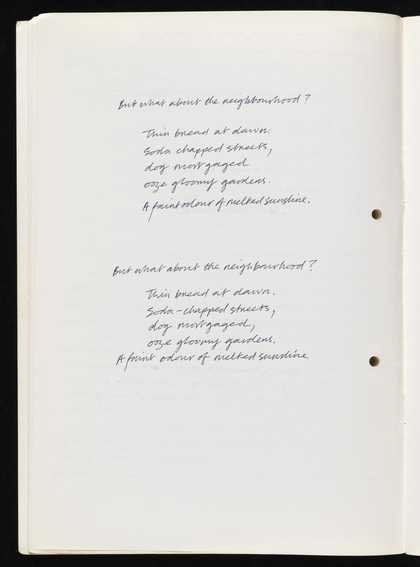 But what about the neighbourhood?
Thin bread at dawn.
Soda chapped streets,
dog mortgaged
ooze gloomy gardens.
A faint odour of melted sunshine.
But what about the neighbourhood?
Thin bread at dawn.
Soda-chapped streets,
dog mortgaged,
ooze gloomy gardens.
A faint odour of melted sunshine